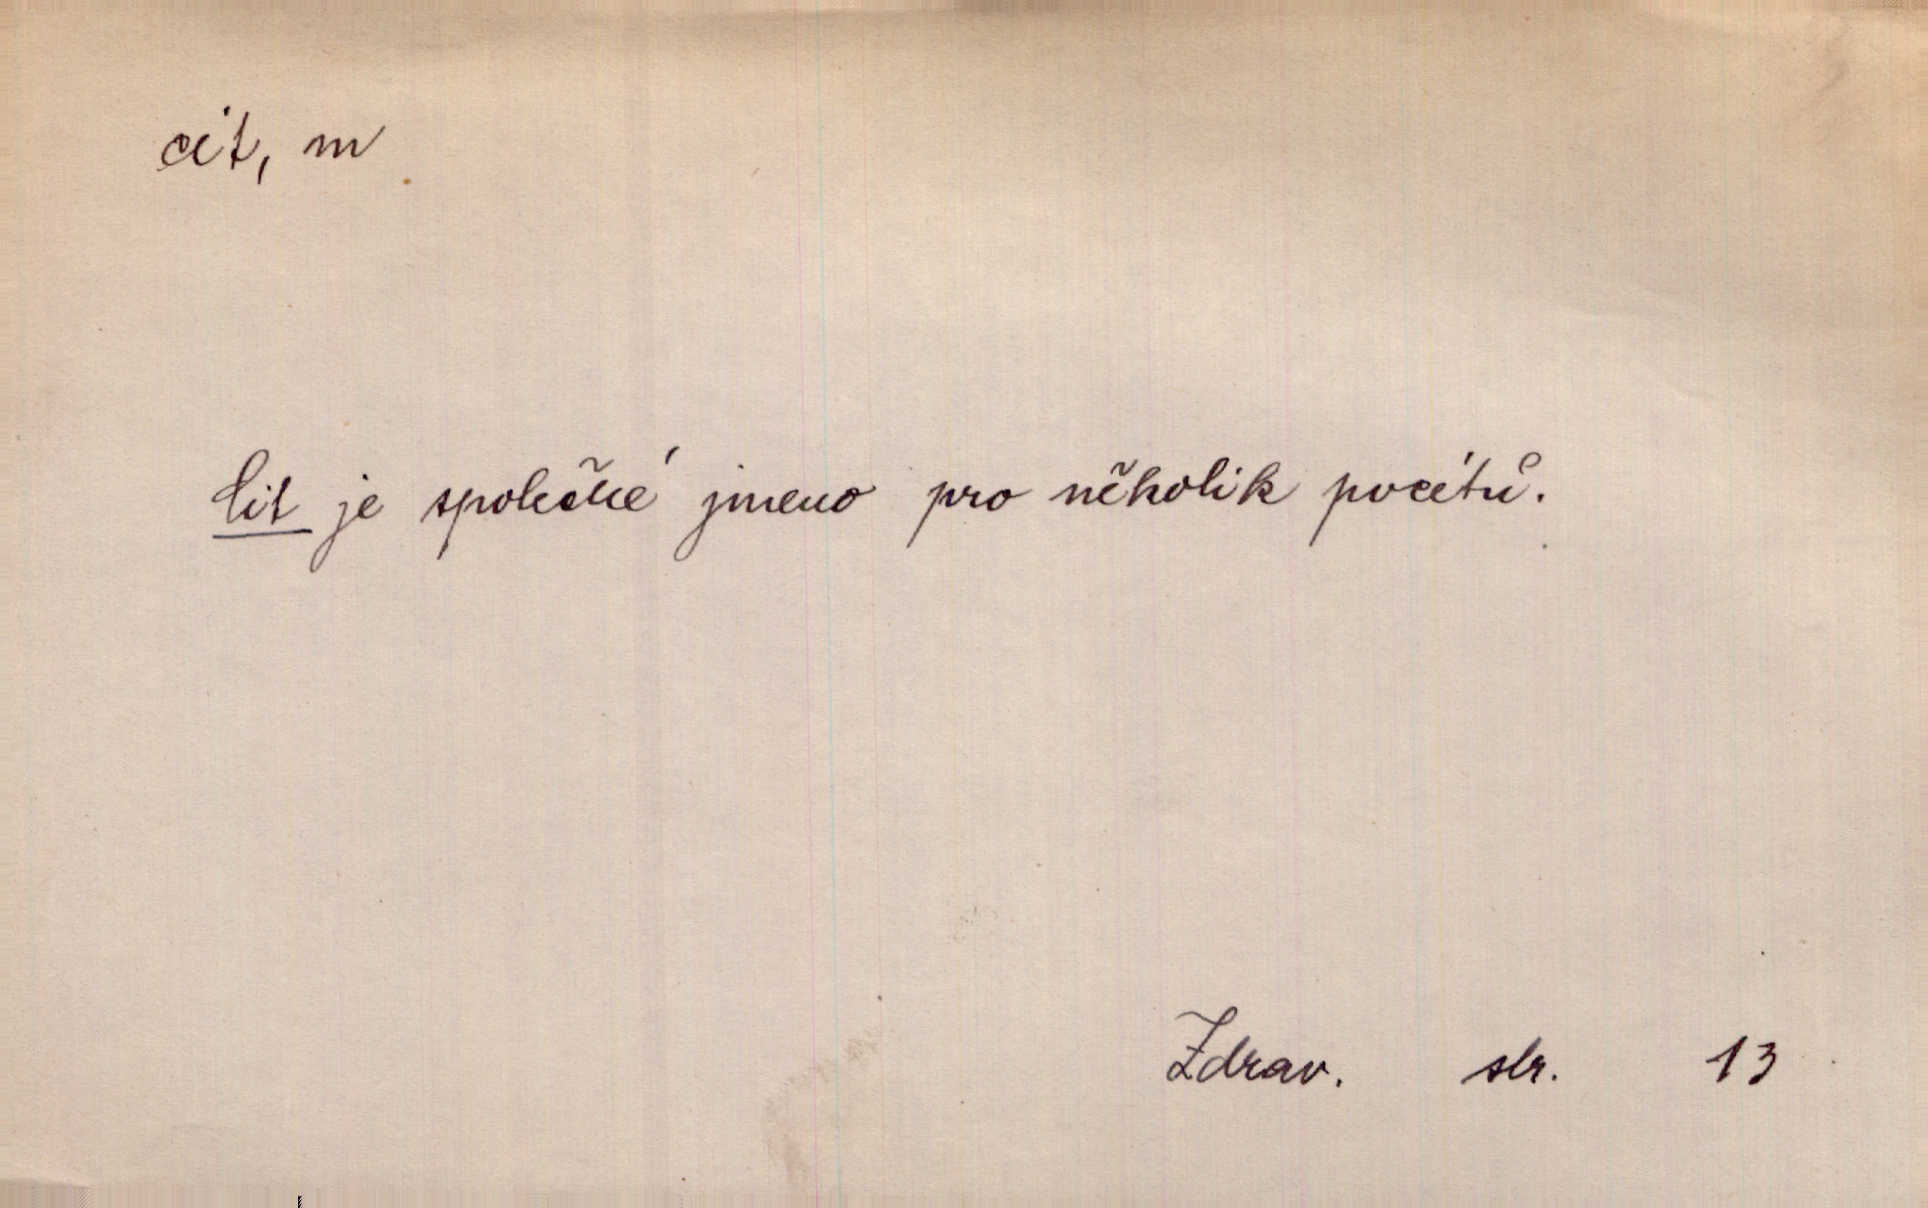 cit, m
Cit je společné jmeno pro několik pocitů.
Zdrav. str. 13